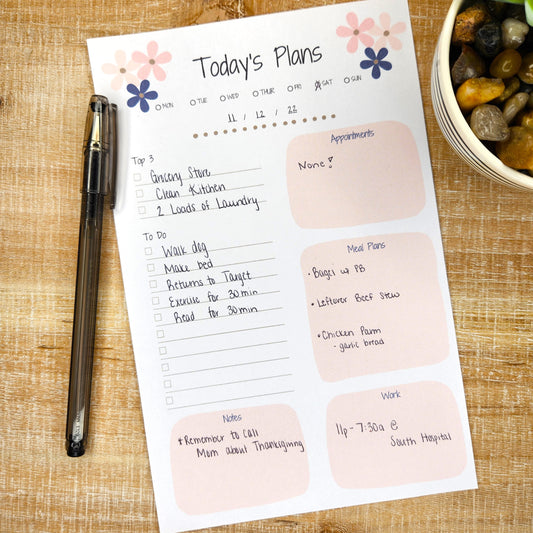 Today's Plans
MON TUE WED THUR FRI SAT SUN
11 / 12 / 22
Top 3
Grocery Store
Clean Kitchen
2 Loads of Laundry
To Do
Walk dog
Make bed
Returns to Target
Exercise for 30 min
Read for 30 min
Appointments
None!
Meal Plans
• Bagel w PB
• Leftover Beef Stew
• Chicken Parm
- garlic bread
Notes
* Remember to Call
Mom about Thanksgiving
Work
11p - 7:30a @
South Hospital